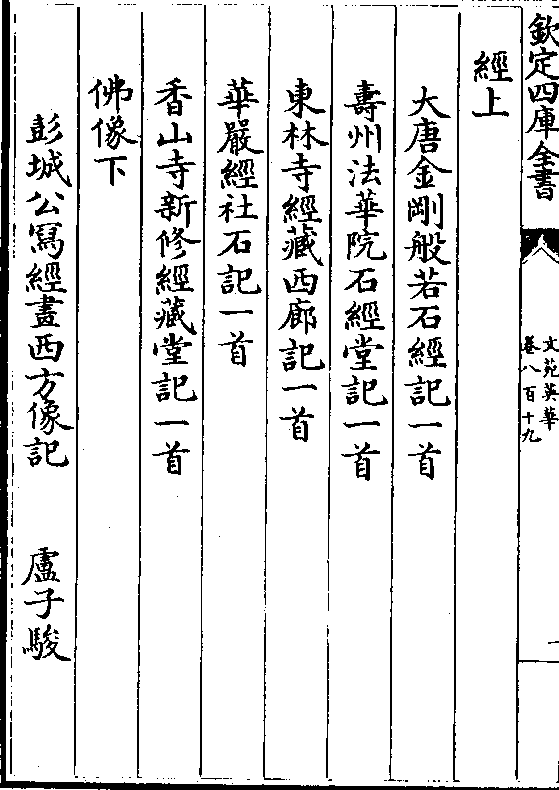 欽定四庫全書
文苑英華
卷八百十九
一
經上
大唐金剛般若石經記一首
壽州法華院石經堂記一首
東林寺經藏西廊記一首
華嚴經社石記一首
香山寺新修經藏堂記一首
佛像下
彭城公寫經畫西方像記 盧子駿